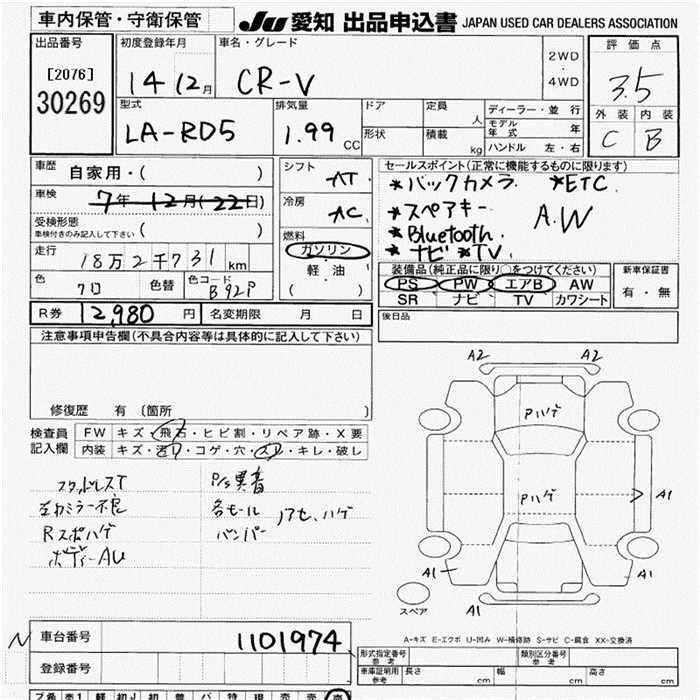 車内保管・守衛保管
JU 愛知 出品申込書 JAPAN USED CAR DEALERS ASSOCIATION
出品番号
[2076]
30269
初度登録年月
14 12月
車名・グレード
CR-V
2WD
・
4WD
評価点
3.5
外装 内装
C B
型式
LA-RD5
排気量
1.99 CC
ドア
形状
定員 人
積載 kg
ディーラー・並行
モデル年式 年
ハンドル 左・右
車歴 自家用・( )
車検 7年 12月(22日)
受検形態
車検付きのみ記入して下さい ( )
走行 18万2千731km
色 クロ 色替 色コード B92P
シフト AT
冷房 AC
燃料
ガソリン
軽・油
( )
セールスポイント(正常に機能するものに限ります)
*バックカメラ *ETC
*スペアキー A.W
*Bluetooth
*ナビ *TV
装備品(純正品に限り○をつけてください)
PS PW エアB AW
SR ナビ TV カワシート
新車保証書
有・無
R券 12,980円 名変期限 月 日
後日品
注意事項申告欄(不具合内容等は具体的に記入して下さい)
修復歴 有 〔箇所 〕
検査員記入欄
FW キズ・飛石・ヒビ割・リペア跡・X要
内装 キズ・汚れ・コゲ・穴・スレ・キレ・破レ
スタッドレスT
左カミラー不良
Rスポハゲ
ボディーAU
P/S異音
各モール
バンパー
アセ、ハゲ
A2 A2
Pハゲ
Pハゲ
A1
A1 A1
スペア
A-キズ E-エクボ U-凹み W-補修跡 S-サビ C-腐食 XX-交換済
N
車台番号 1101974
登録番号
形式指定番号 参考
類別区分番号 参考
車庫証明用 参考 長さ cm 幅 cm 高さ cm